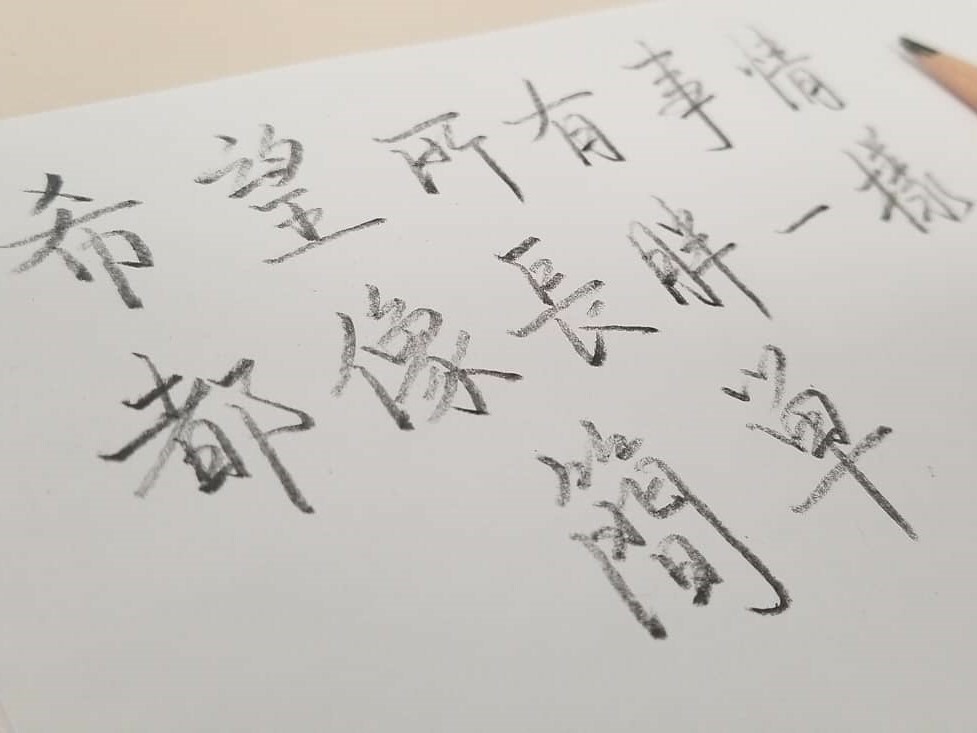 希望所有事情
都像長胖一樣
簡單